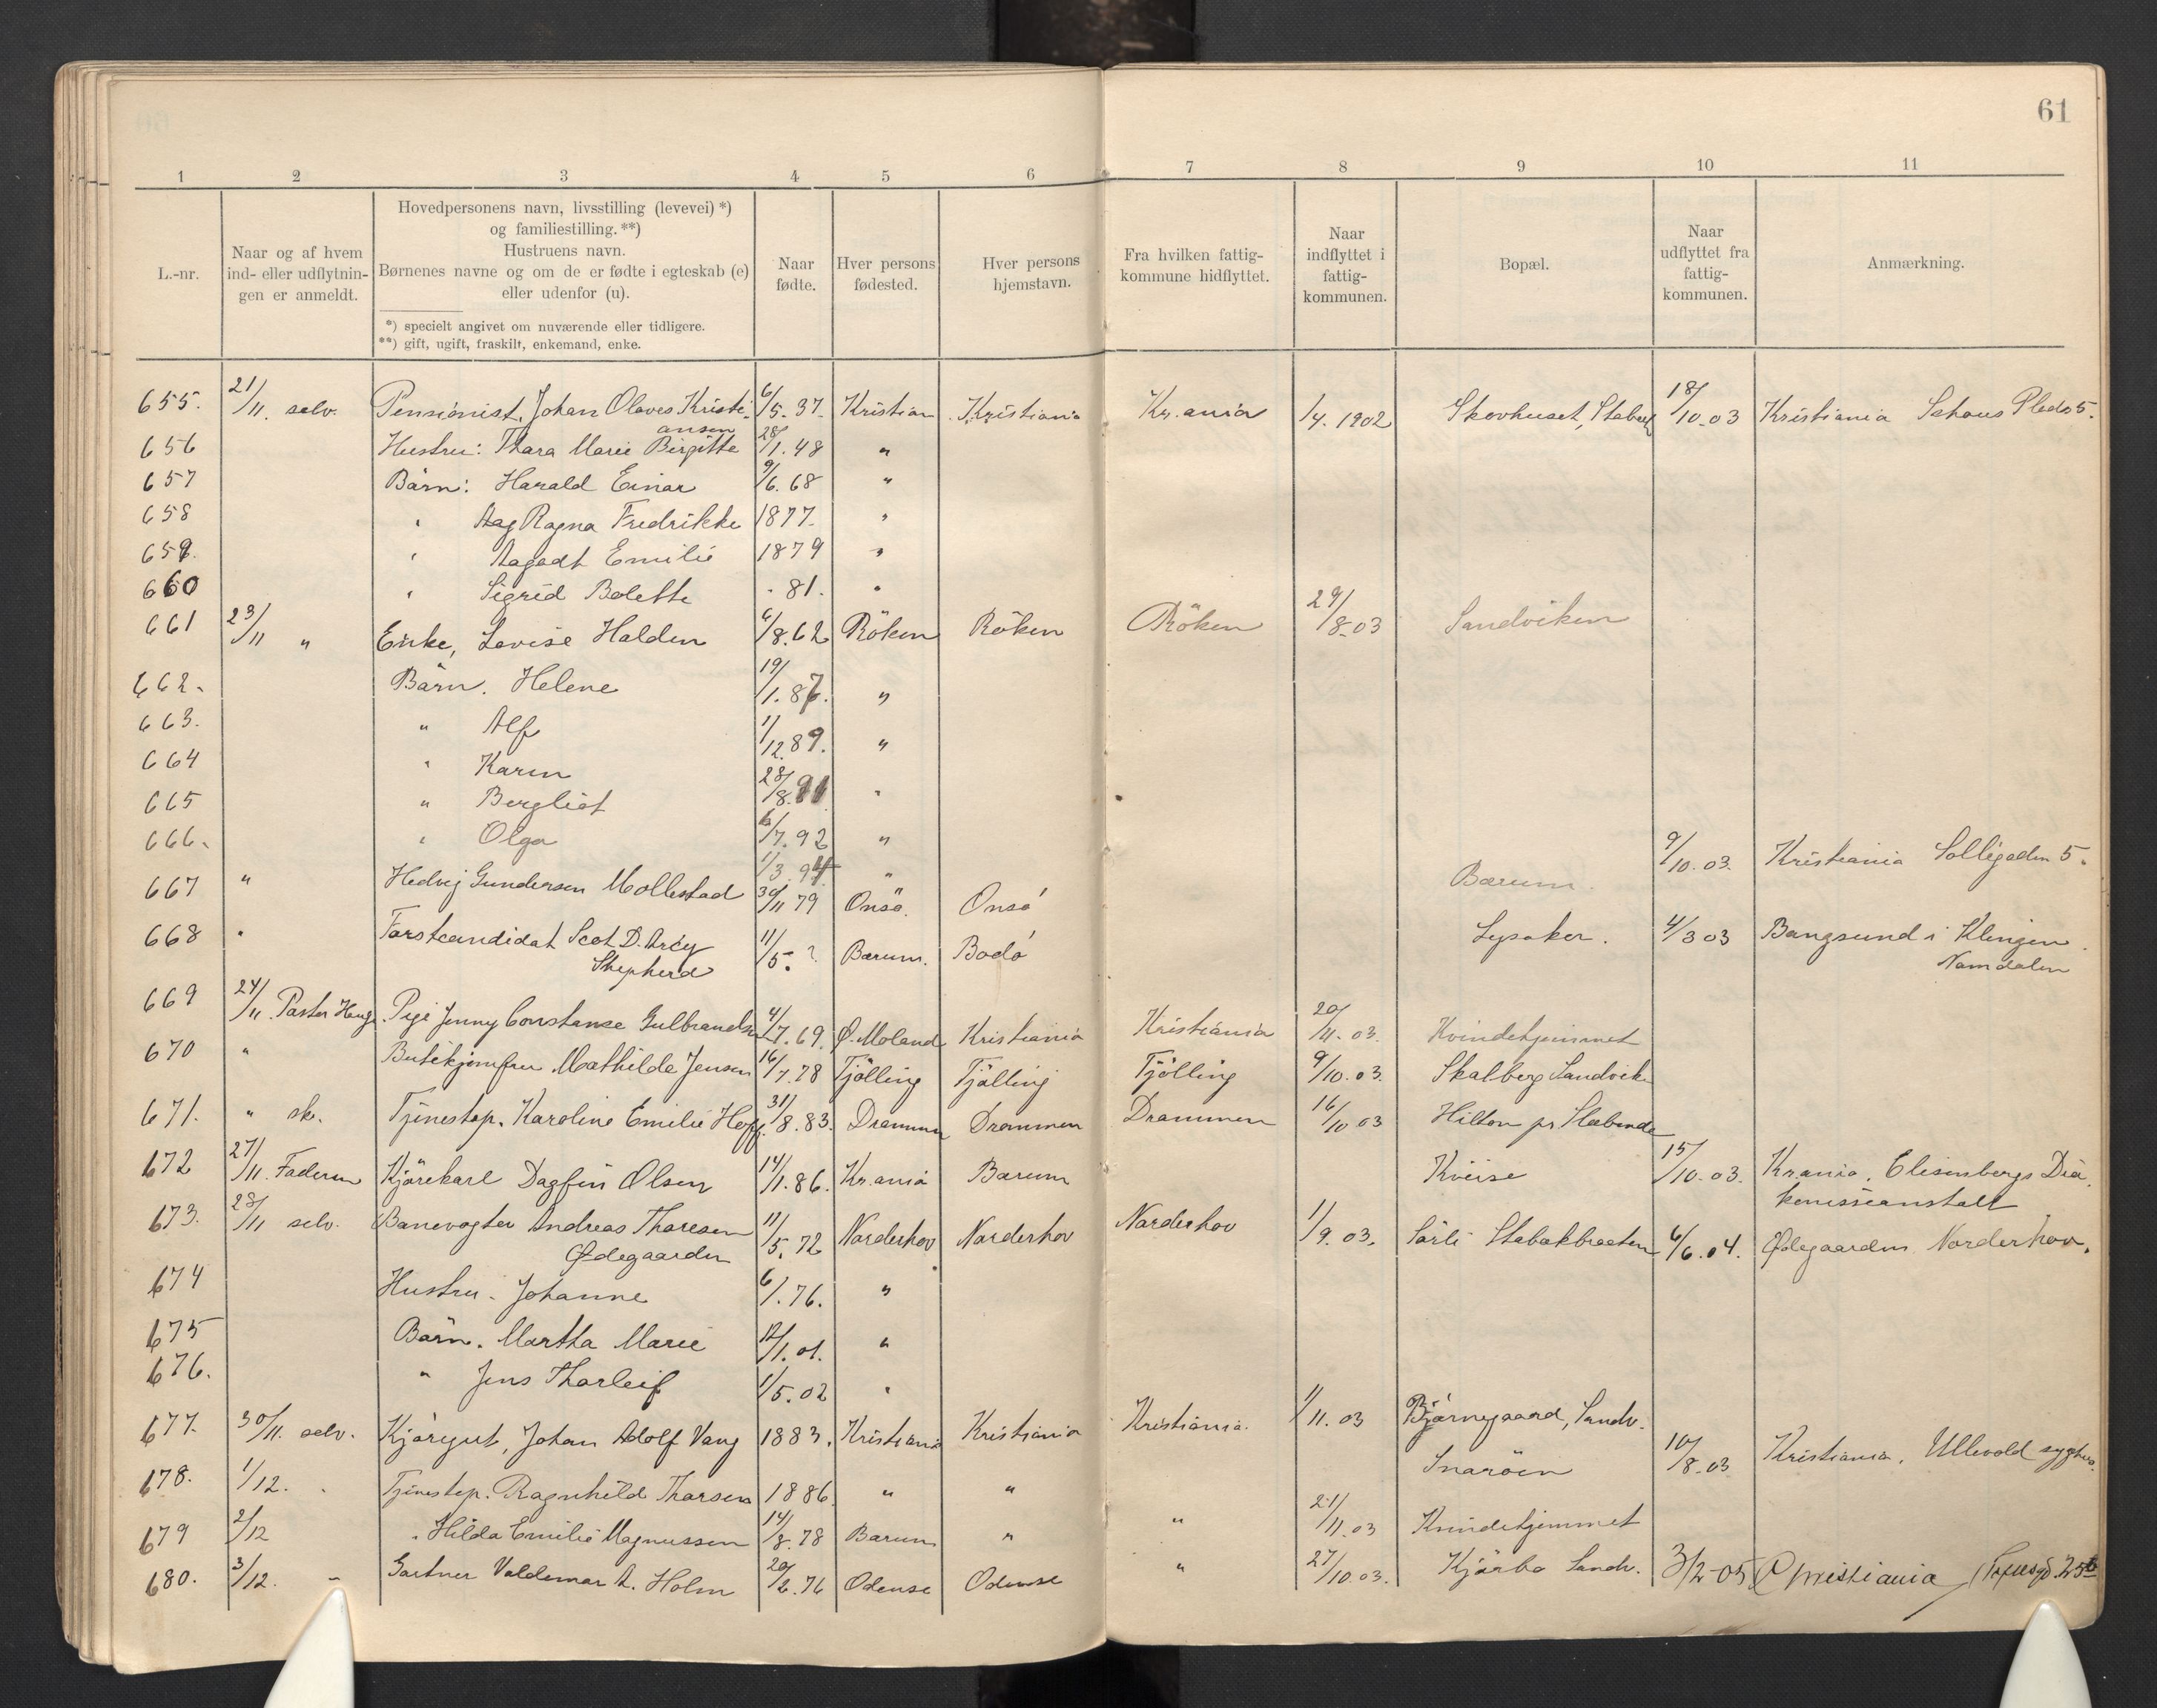 61
1 2 3 4 5 6 7 8 9 10 11
L.-nr.
Naar og af hvem ind- eller udflytnin-gen er anmeldt.
Hovedpersonens navn, livsstilling (levevei) *)
og familiestilling. **)
Hustruens navn.
Børnenes navne og om de er fødte i egteskab (e)
eller udenfor (u).
*) specielt angivet om nuværende eller tidligere.
**) gift, ugift, fraskilt, enkemand, enke.
Naar fødte.
Hver persons fødested.
Hver persons hjemstavn.
Fra hvilken fattig-kommune hidflyttet.
Naar indflyttet i fattig-kommunen.
Bopæl.
Naar udflyttet fra fattig-kommunen.
Anmærkning.
655. 21/11. selv. Pensionist, Johan Olaves Kristi- 6/5. 37. Kristian Kristiania Kr.ania 1/4. 1902 Skovhuset, Stabæk 18/10-03 Kristiania Schous Plads 5.
ansen
656 Hustru: Thara Marie Birgitte 28/1. 48 "
657 Börn: Harald Einar 9/6. 68 "
658 " Ragna Fredrikke 1877. "
659. " Aagodt Emilie 1879 "
660 " Sigrid Bolette - 81. "
661 23/11 " Enke, Lovise Halden 6/8. 62 Röken Röken Röken 29/8-03 Sandviken
662. Börn. Helene 19/1. 87. "
663. " Alf 1/12 89. "
664 " Karen 28/8. 91. "
665 " Bergliot 6/7. 92 "
666. " Olga 1/3. 94 "
667 " Hedvig Gundersen Mollestad 30/11 79 Onsö. Onsö Bærum. 9/10. 03. Kristiania Solligaden 5.
668 " Forstcandidat Scot D. Arcy 11/5. ? Bærum. Bodö Lysaker. 4/3 03 Bangsund i Klingen.
Shepherd Namdalen
669 24/11. Pastor Hauge Pige Jenny Constanse Gulbrandsen 4/7. 69. Ø. Moland Kristiania Kristiania 20/11. 03. Kvindehjemmet
670 " Butikjomfru Mathilde Jensen 16/7. 78 Tjölling Tjölling Tjölling 9/10. 03. Skalberg Sandvik
671. " sk. Tjenestep. Karoline Emilie Hoff. 31/8. 83. Drammen Drammen Drammen 16/10 03 Hilton pr Slæbende
672 27/11. Faderen Kjörekarl Dagfin Olsen 14/1. 86. Kr.ania Bærum Kveise 15/10. 03. Kr.ania. Elisenbergs Dia
konisseanstalt
673. 28/11 selv. Banevogter Andreas Thoresen 11/5. 72 Norderhov Norderhov Norderhov 1/9. 03. Sörli Stabakbraaten 6/6. 04. Ødegaarden Norderhov.
Ødegaarden
674 Hustru. Johanne 6/. 76. "
675 Börn. Martha Marie 12/1. 01. "
676. " Jens Thorleif 1/5. 02 "
677. 30/11. selv. Kjöregut, Johan Adolf Vang 1883. Kristiania Kristiania Kristiania. 1/11. 03 Bjørnegaard, Sandv.
678. 1/12. " Tjenestep. Ragnhild Thorsen 1886. " " Snaröen 10/8-03 Kristiania. Ullevold sygehus.
679 2/12 " Hilda Emilie Magnussen 14/8. 78 Bærum " " 21/11. 03 Kvindehjemmet
680. 3/12. " Gartner Valdemar A. Holm 20/2. 76 Odense Odense " 27/10. 03. Kjörbo Sandv. 3/2-05 Christiania